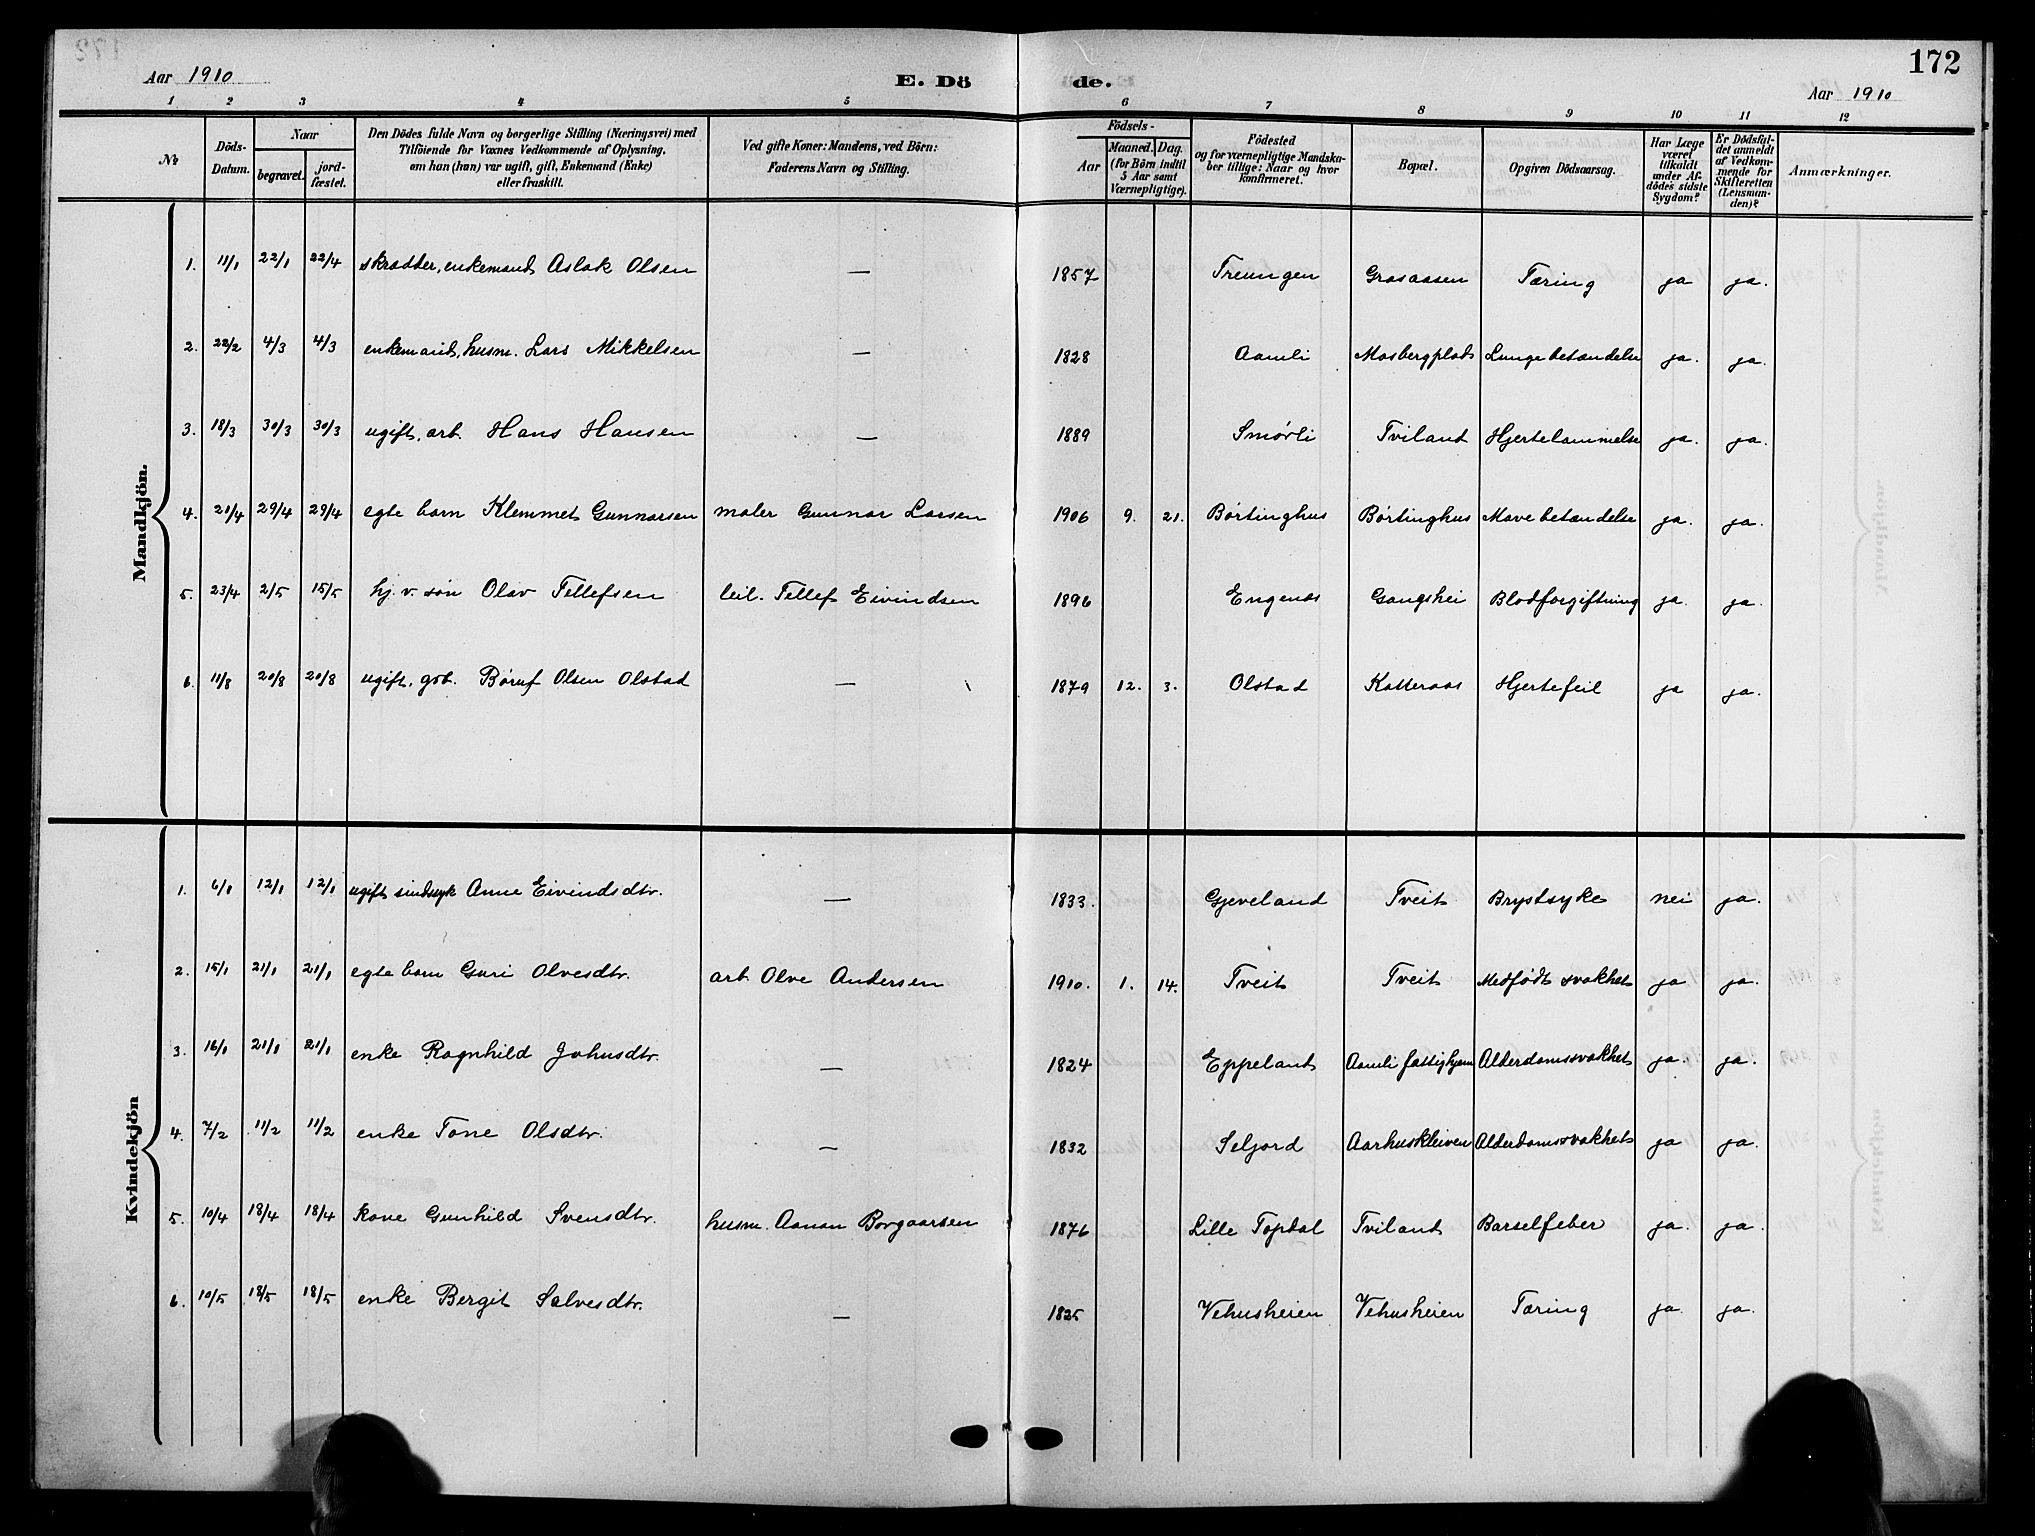 172
Aar 1910 E. Dö de. Aar 1910
1 2 3 4 5 6 7 8 9 10 11 12
№ Döds-Datum. Naar begravet. jord-fæstet. Den Dödes fulde Navn og borgerlige Stilling (Næringsvei) med Tilföiende for Voxnes Vedkommende af Oplysning, om han (hun) var ugift, gift, Enkemand (Enke) eller fraskilt. Ved gifte Koner: Mandens, ved Börn: Faderens Navn og Stilling. Födsels- Aar Maaned. Dag. (for Börn indtil 5 Aar samt Værnepligtige). Födested og for værnepligtige Mandskaber tillige: Naar og hvor konfirmeret. Bopæl. Opgiven Dödsaarsag. Har Læge været tilkaldt under Afdödes sidste Sygdom? Er Dödsfaldet anmeldt af Vedkommende for Skifteretten (Lensmanden)? Anmærkninger.
Mandkjön.
1. 11/1 22/1 22/4 skrædder, enkemand Aslak Olsen — 1857 Treungen Grasaasen Tæring ja ja.
2. 22/2 4/3 4/3 enkemand, husm. Lars Mikkelsen — 1828 Aamli Mosbergplads Lungebetændelse ja. ja.
3. 18/3 30/3 30/3 ugift, arb. Hans Hansen — 1889 Smørli Tviland Hjertelammelse ja. ja.
4. 21/4 29/4 29/4 egte barn Klemmet Gunnarsen maler Gunnar Larsen 1906 9. 21. Børtinghus Børtinghus Mavebetændelse ja. ja.
5. 23/4 2/5 15/5 hj. v. søn Olav Tellefsen leil. Tellef Eivindsen 1896 Engenes Gangshei Blodforgiftning ja. ja.
6. 11/8 20/8 20/8 ugift, gbr. Børuf Olsen Olstad — 1879 12. 3. Olstad Katteraas Hjertefeil ja ja.
Kvindekjön
1. 6/1 12/1 12/1 ugift sindssyk Anne Eivindsdtr. — 1833. Gjeveland Tveit Brystsyke nei ja.
2. 15/1 21/1 21/1 egte barn Guri Olvesdtr. arb. Olve Andersen 1910. 1. 14. Tveit Tveit Medfødt svakhet ja ja.
3. 16/1 21/1 21/1 enke Ragnhild Johusdtr. — 1824 Eppeland Aamli fattighjem Alderdomssvakhet ja. ja.
4. 7/2 11/2 11/2 enke Tone Olsdtr. — 1832 Seljord Aarhuskleiven Alderdomssvakhet ja ja.
5. 10/4 18/4 18/4 kone Gunhild Svensdtr. husm. Aanan Borgaarsen 1876 Lille Topdal Tviland Barselfeber ja. ja.
6. 10/5 18/5 18/5 enke Bergit Salvesdtr. — 1825 Vehusheien Vehusheien Tæring ja. ja.